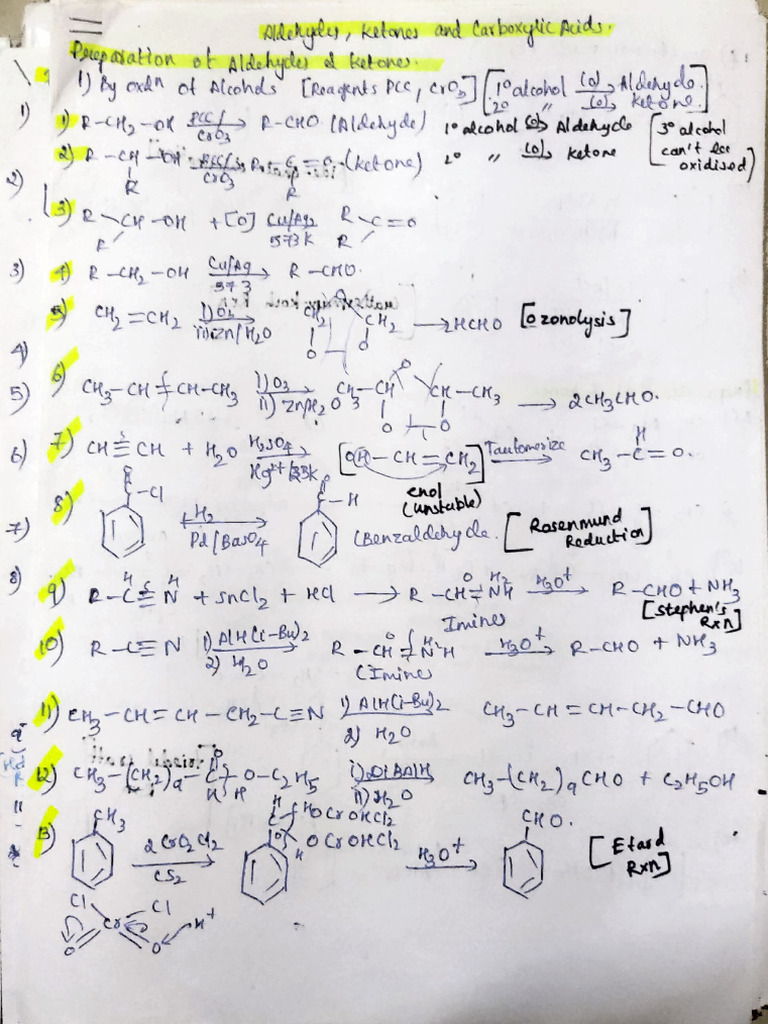 Aldehydes, Ketones and Carboxylic Acids.
Preparation of Aldehydes & Ketones.
1) By oxdn of Alcohols [Reagents PCC, CrO3] [1° alcohol (o)→ Aldehyde.
2° " (o)→ Ketone.]
1) R-CH2-OH PCC/CrO3→ R-CHO (Aldehyde) 1° alcohol (o)→ Aldehyde [3° alcohol
2) R-CH-OH PCC/CrO3→ R-C=O (Ketone) 2° " (o)→ Ketone can't be
R R oxidised]
3) R CH-OH + [O] Cu/Ag 573K→ R C=O
R R
4) R-CH2-OH Cu/Ag 573→ R-CHO.
5) CH2=CH2 i) O3 ii) Zn/H2O→ CH2 O CH2 → HCHO [Ozonolysis]
O O
6) CH3-CH=CH-CH3 i) O3 ii) Zn/H2O→ CH3-CH O CH-CH3 → 2CH3CHO.
O O
7) CH≡CH + H2O H2SO4 Hg2+/333K→ [OH-CH=CH2] Tautomerize→ CH3-C=O.
H
enol
(unstable)
8) C-Cl H2 Pd/BaSO4→ C-H (Benzaldehyde. [Rosenmund
O O Reduction]
9) R-C≡N + SnCl2 + HCl → R-CH=NH H3O+→ R-CHO + NH3
Imines [Stephen's
Rxn]
10) R-C≡N 1) AlH(i-Bu)2 2) H2O→ R-CH=N-H H3O+→ R-CHO + NH3
(Imines
11) CH3-CH=CH-CH2-C≡N 1) AlH(i-Bu)2 2) H2O CH3-CH=CH-CH2-CHO
12) CH3-(CH2)9-C-O-C2H5 i) DiBAlH ii) H2O→ CH3-(CH2)9CHO + C2H5OH
O
H H
13) CH3 2CrO2Cl2 CS2→ C H OCrOHCl2 OCrOHCl2 H3O+→ CHO. [Etard
Rxn]
Cl Cr Cl
O O H+
1)
2)
3)
4)
5)
6)
7)
8)